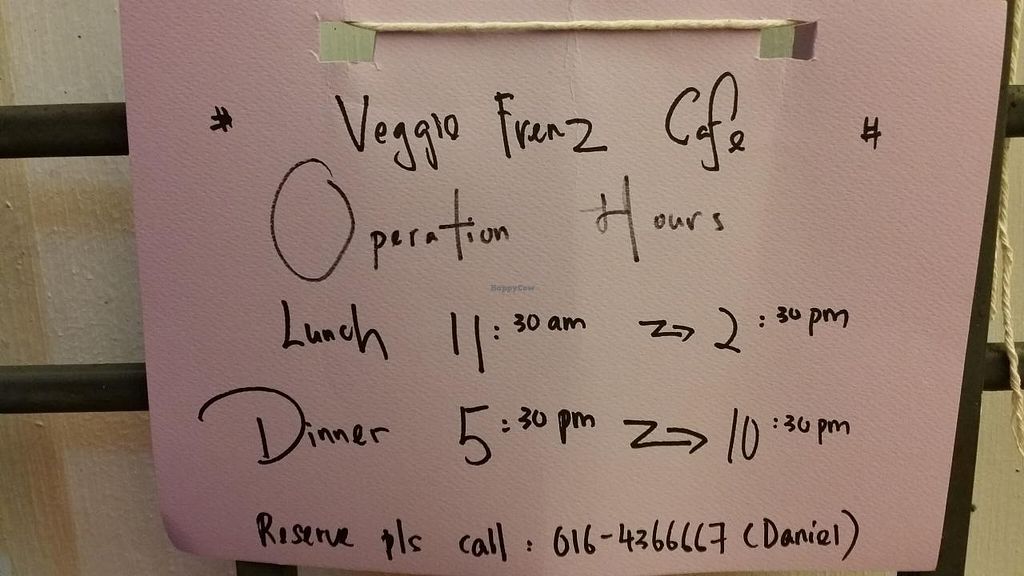 # Veggie Frenz Cafe #
Operation Hours
HappyCow
Lunch 11:30 am → 2:30 pm
Dinner 5:30 pm → 10:30 pm
Reserve pls call : 016-4366667 (Daniel)